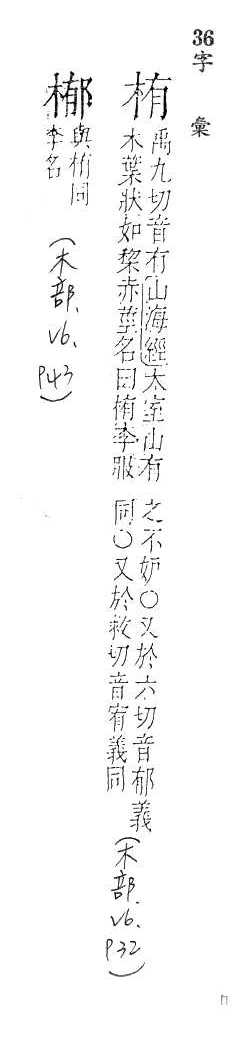 36字彙
栯
禹九切音有山海經太室山有
木葉狀如棃赤葉名曰栯李服
之不妒〇又於六切音郁義
同〇又於救切音宥義同
(木部.V6.P32)
與栯同
李名
(木部.V6.P43)